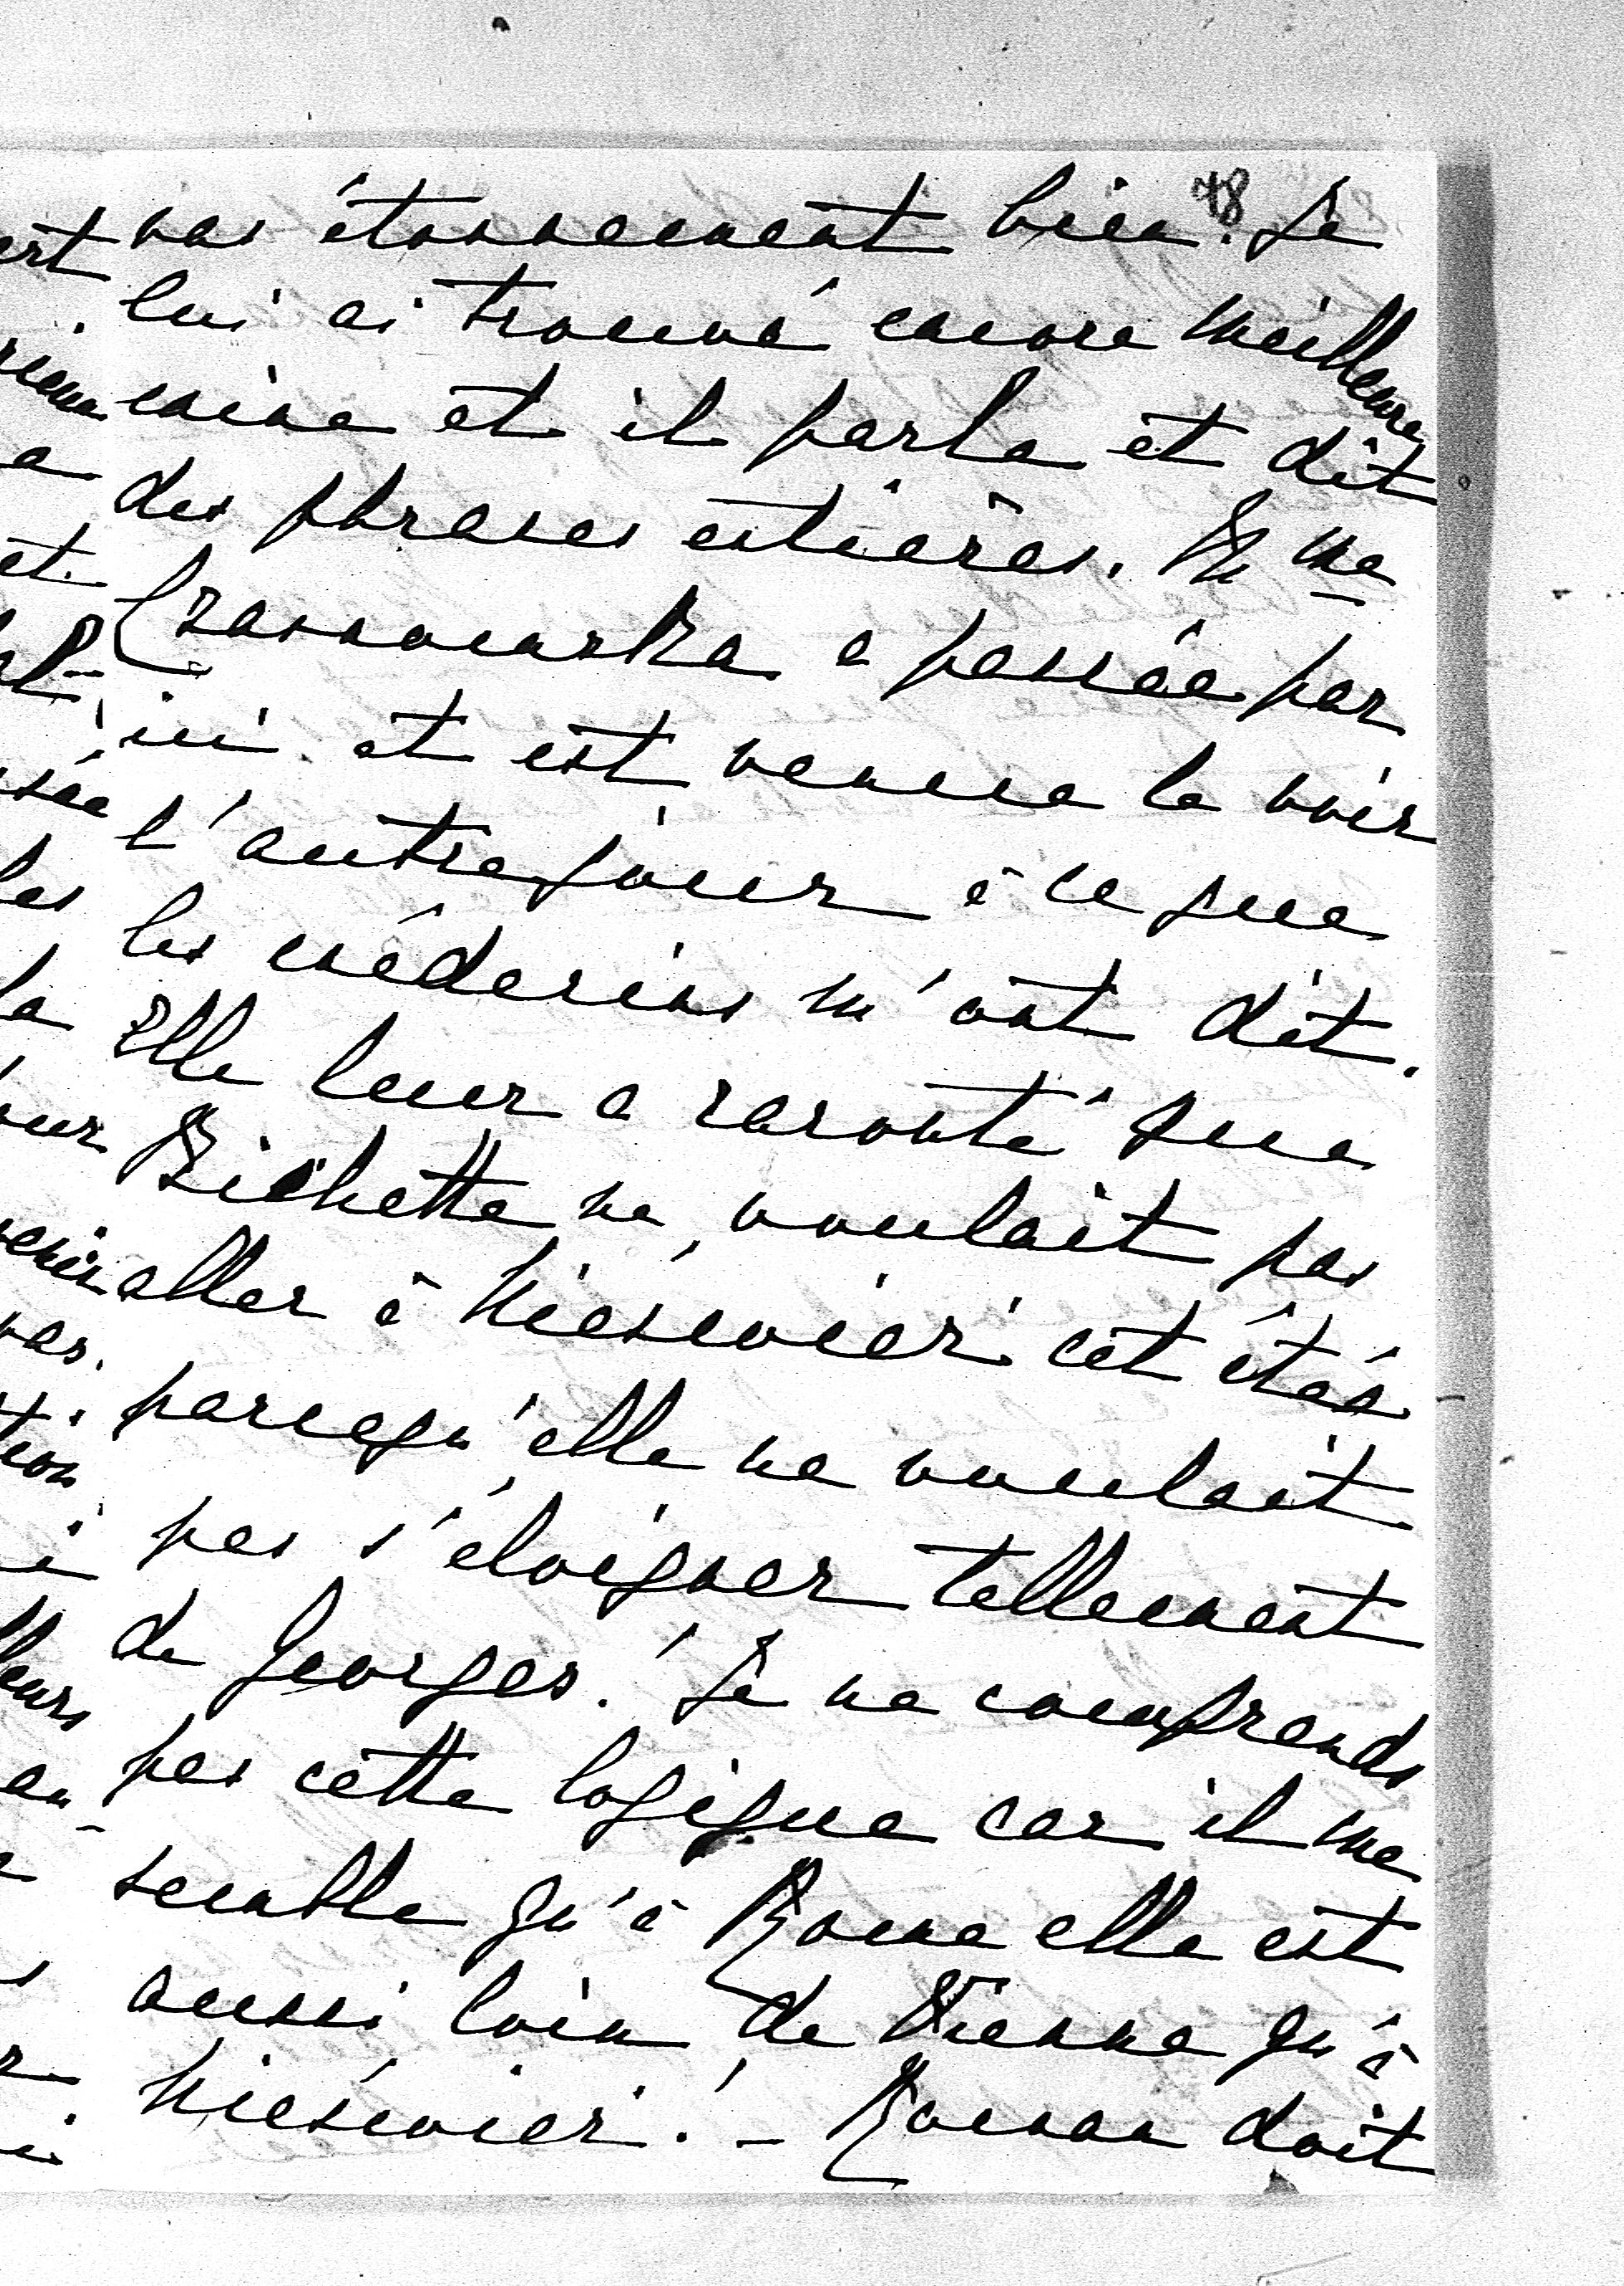 78
vas étonnement bien. Je
lui ai trouvé encore meilleure
mine et il parla et dit
des phrases entières. Me
a passée par
ici et est venue le voir
l'autre jour à ce que
les médecins m'ont dit.
Elle leur a raconté que
Bichette ne voulait pas
aller à Niesvier cet été
parcequ'elle ne voulait
pas s'éloigner tellement
de Georges! Je ne comprends
pas cette logique car il me
semble qu'à Rome elle est
aussi loin de Vienne qu'à
Niesvier! - Roman doit